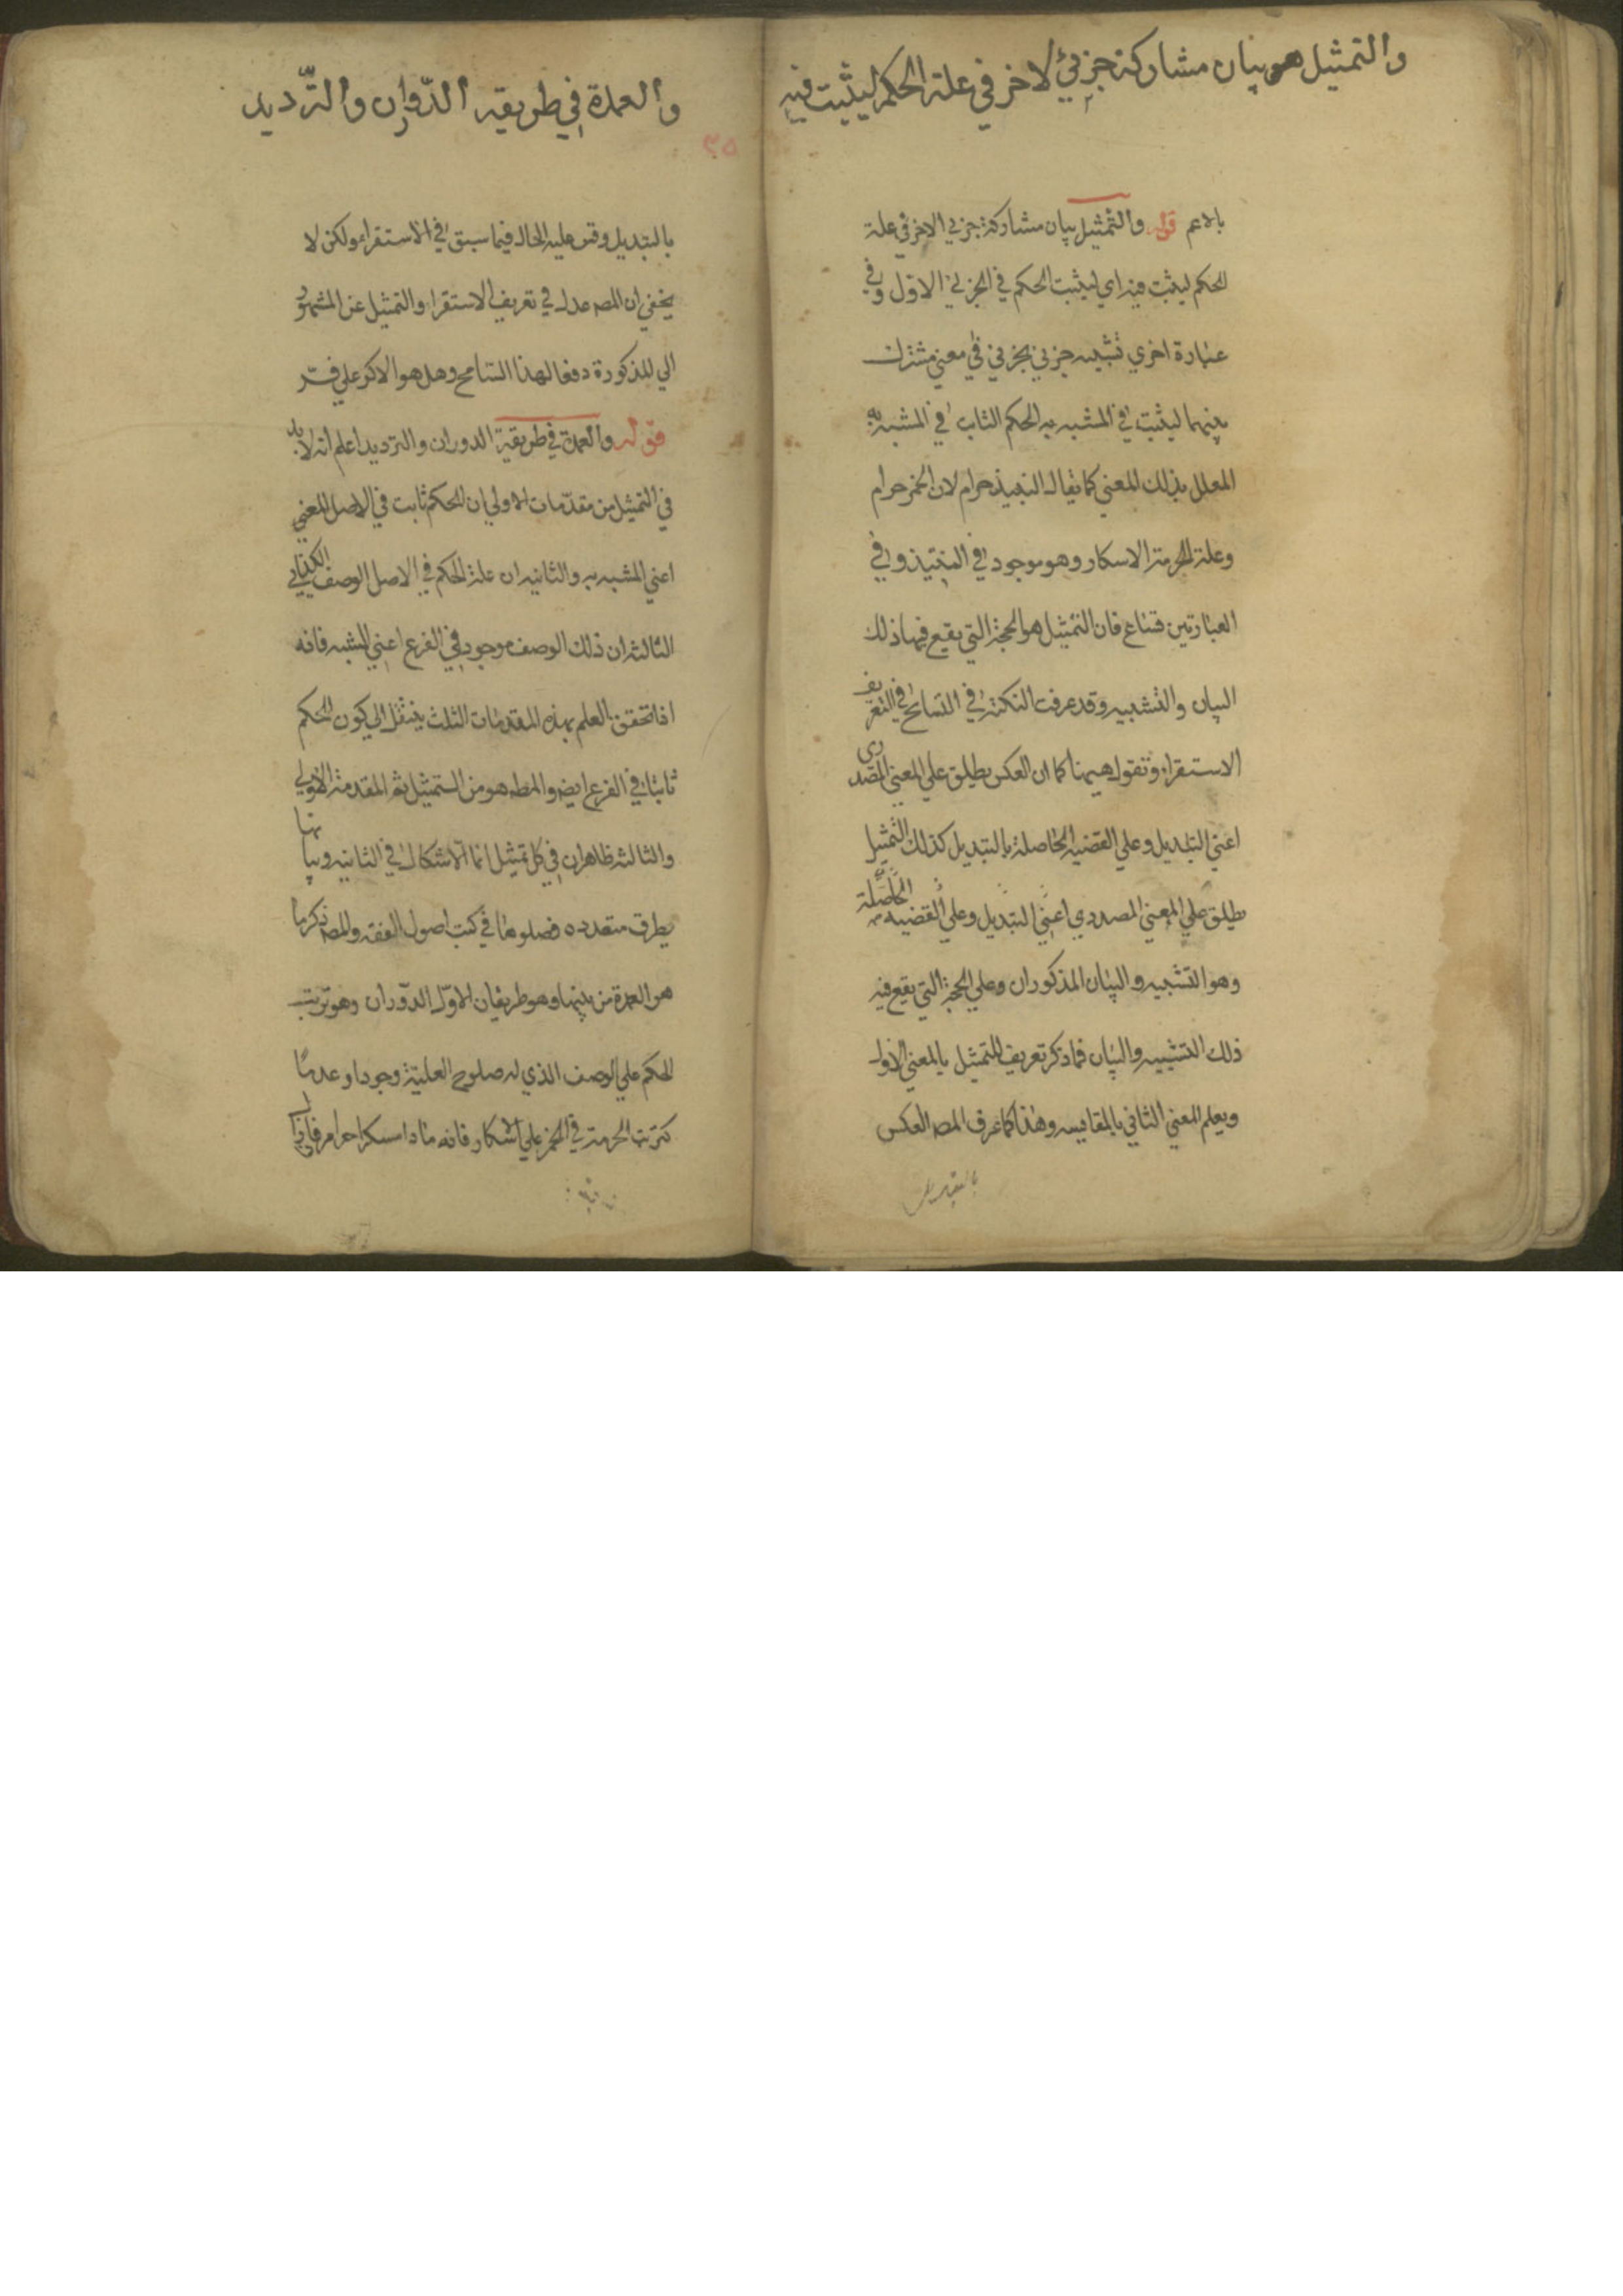 والتمثيل هو بيان مشاركة جزئي لاخر في علة الحكم ليثبت فيه
بالاعم قوله والتمثيل بيان مشاركة جزئي الاخر في علة
الحكم ليثبت فيه اي ليثبت الحكم في الجزئي الاول وفي
عبارة اخري تشبيه جزئي بجزئي في معني مشترك
بينهما ليثبت في المشبه به الحكم الثابت في المشبه به
المعلل بذلك المعني كما يقال النبيذ حرام لان الخمر حرام
وعلة الحرمة الاسكار وهو موجود في النبيذ وفي
العبارتين فان التمثيل هو الحجة التي يقع فيها ذلك
البيان والتشبيه وقد عرفت النكتة في التسامح في التعريف
الاستقراء ونقول هيهنا كما ان العكس يطلق علي المعني المصدري
اعني التبديل وعلي القضية الحاصلة بالتبديل كذلك التمثيل
يطلق علي المعني المصدري اعني التبديل وعلي القضيه الحاصلة
وهو التشبيه والبيان المذكوران وعلي الحجة التي يقع فيه
ذلك التشبيه والبيان فما ذكر تعريف للتمثيل بالمعني الاول
ويعلم المعني الثاني بالمقايسه وهذا كما عرف المصه العكس
بالتبديل
والعمدة في طريقه الدوران والترديد
٣٥
بالتبديل وقس عليه الحال فيما سبق في الاستقراء ولكن لا
يخفي ان المصه عدل في تعريف الاستقراء والتمثيل عن المشهور
الي المذكورة دفعا لهذا التسامح وهل هو الاكر علي فر
قوله والعمدة في طريقة الدوران والترديد اعلم انه لا بد
في التمثيل من مقدمات الاولي ان الحكم ثابت في الاصل المعني
اعني المشبه به والثانيه ان علة الحكم في الاصل الوصف الكذائي
الثالثه ان ذلك الوصف موجود في الفرع اعني المشبه فانه
اذا تحقق العلم بهذه المقدمات الثلث ينتقل الي كون الحكم
ثابتا في الفرع ايضه والمطه هو من التمثيل ثم المقدمة الاولي
والثالثه ظاهران في كل تمثيل انما الاشكال في الثانيه وبيانها
بطرق متعدده فصلوها في كتب اصول الفقه والمصه ذكر ما
هو العمدة من بينها وهو طريقان الاول الدوران وهو ترتب
الحكم علي الوصف الذي له صلوح العلية وجودا وعدما
كترتب الحرمة في الخمر علي الاسكار فانه ما دام مسكرا حرام فاذا